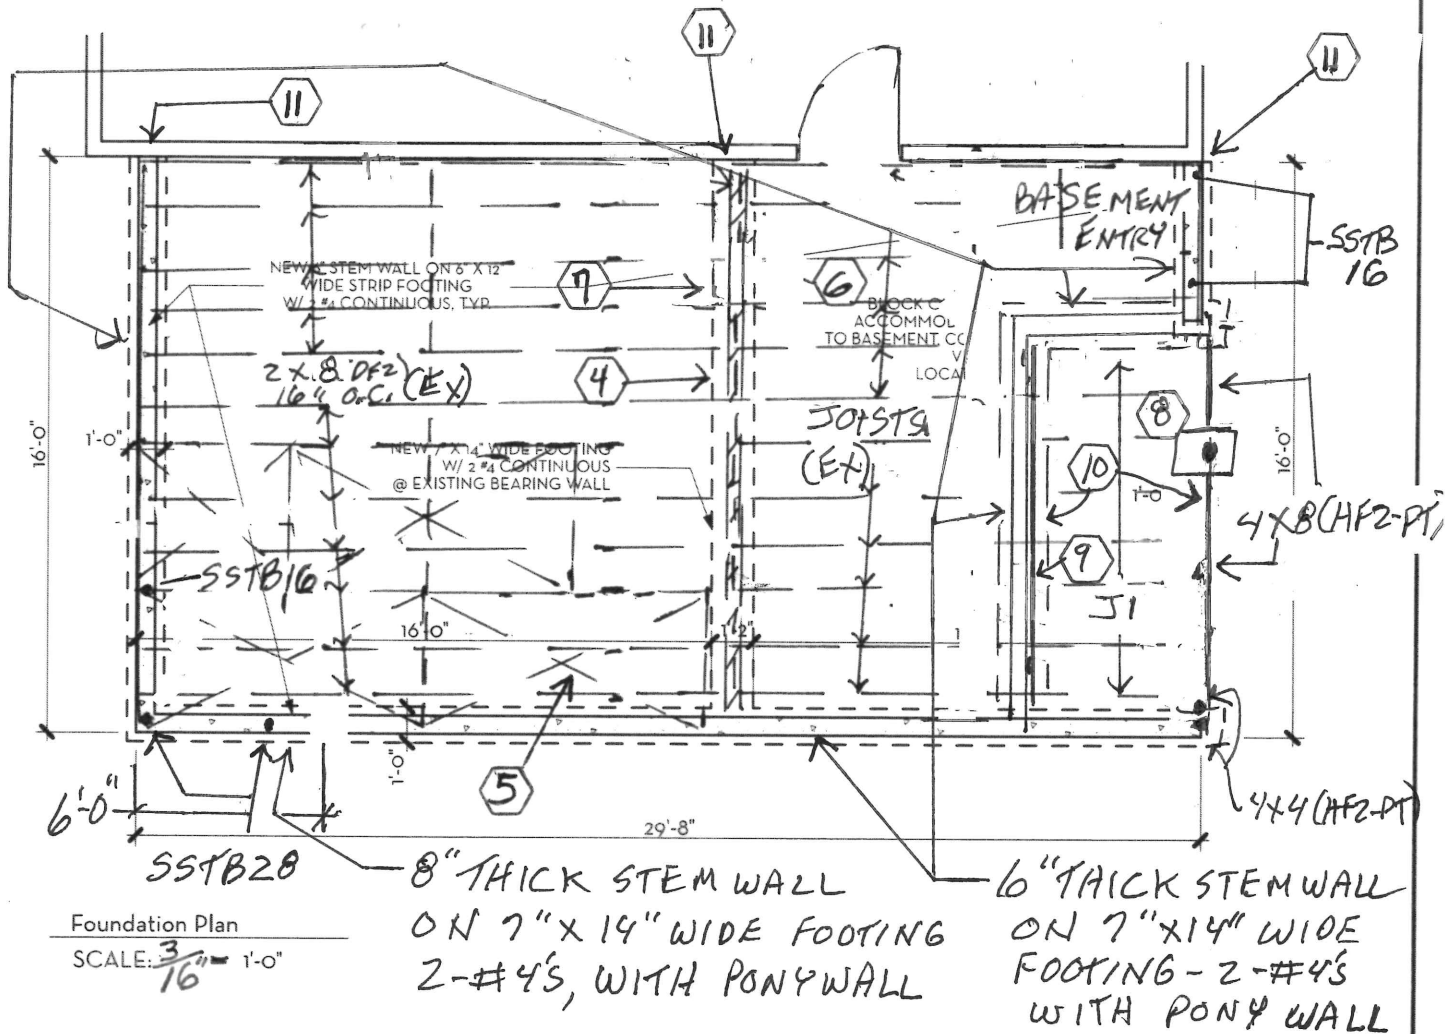 11
11
11
BASEMENT
ENTRY
SSTB
16
NEW 6" STEM WALL ON 6" X 12"
WIDE STRIP FOOTING
W/ 2 #4 CONTINUOUS, TYP.
7
6
BLOCK C
ACCOMMOL
TO BASEMENT CC
V
LOCA
2 X 8 DF2
16" O.C. (EX)
4
8
JOISTS
(EX)
16'-0"
1'-0"
NEW 7" X 14" WIDE FOOTING
W/ 2 #4 CONTINUOUS
@ EXISTING BEARING WALL
10
1'-0
16'-0"
4X8(HF2-PT)
9
SSTB16
J1
16'-0"
1'-2"
1'-0"
5
6'-0"
29'-8"
4X4(HF2-PT)
SSTB28
8" THICK STEM WALL
ON 7" X 14" WIDE FOOTING
2-#4'S, WITH PONYWALL
6" THICK STEMWALL
ON 7"X14" WIDE
FOOTING - 2-#4'S
WITH PONY WALL
Foundation Plan
SCALE: 3/16" = 1'-0"